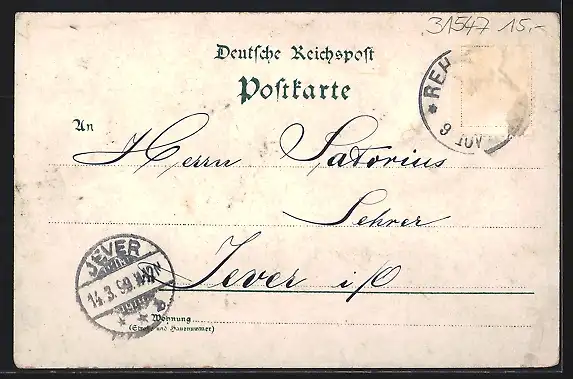 31547 15.-
Deutsche Reichspost
Postkarte
REH
An
Herrn Satorius
Lehrer
JEVER
14.3.99
Jever i/O
Wohnung
(Straße und Hausnummer)